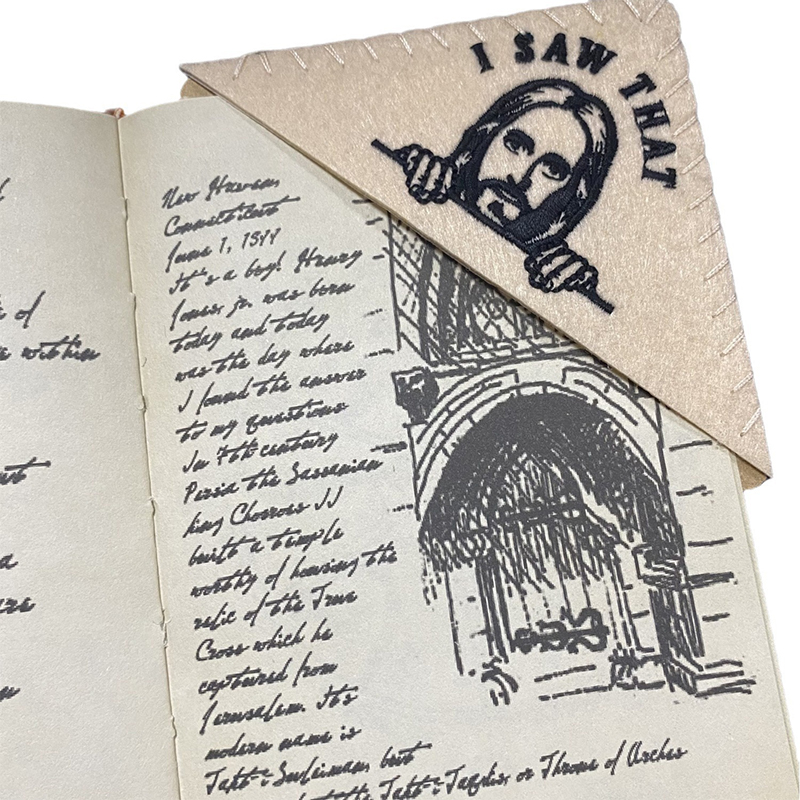 I SAW THAT
of
within
New Haven,
Connecticut
June 1, 1899
It's a boy! Henry
Jones, jr. was born
today and today
was the day where
I found the answer
to my questions
In 7th century
Persia the Sassanian
king Chosroes II
built a temple
worthy of housing the
relic of the True
Cross which he
captured from
Jerusalem. It's
modern name is
Takt-i-Suleiman, but
the Takt-i-Taqdis, or Throne of Arches